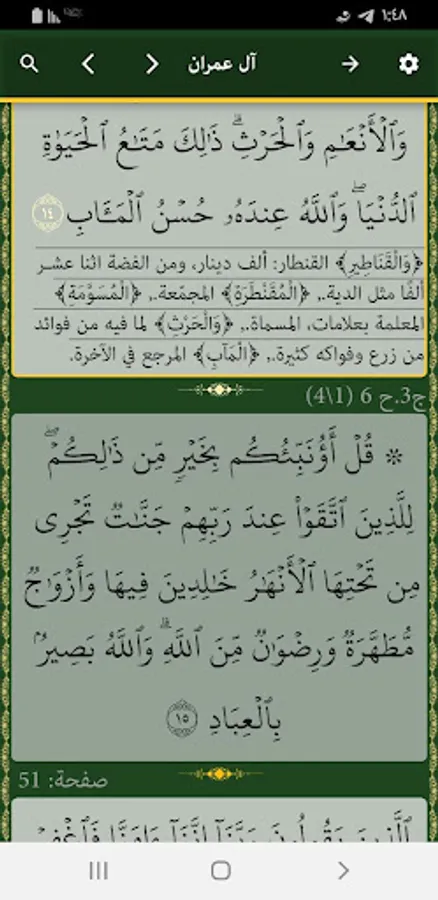 ١:٤٨
آل عمران
وَٱلْأَنْعَٰمِ وَٱلْحَرْثِ ۗ ذَٰلِكَ مَتَٰعُ ٱلْحَيَوٰةِ
ٱلدُّنْيَا ۖ وَٱللَّهُ عِندَهُۥ حُسْنُ ٱلْمَـَٔابِ ١٤
﴿وَالْقَنَاطِيرِ﴾ القنطار: ألف دينار، ومن الفضة اثنا عشر
ألفًا مثل الدية.، ﴿الْمُقَنْطَرَةِ﴾ المجمّعة.، ﴿الْمُسَوَّمَةِ﴾
المعلمة بعلامات، المسماة.، ﴿وَالْحَرْثِ﴾ لما فيه من فوائد
من زرع وفواكه كثيرة.، ﴿الْمَآبِ﴾ المرجع في الآخرة.
ج3.ح 6 (1\4)
۞ قُلْ أَؤُنَبِّئُكُم بِخَيْرٍ مِّن ذَٰلِكُمْ ۖ
لِلَّذِينَ ٱتَّقَوْا۟ عِندَ رَبِّهِمْ جَنَّٰتٌ تَجْرِى
مِن تَحْتِهَا ٱلْأَنْهَٰرُ خَٰلِدِينَ فِيهَا وَأَزْوَٰجٌ
مُّطَهَّرَةٌ وَرِضْوَٰنٌ مِّنَ ٱللَّهِ ۗ وَٱللَّهُ بَصِيرٌۢ
بِٱلْعِبَادِ ١٥
صفحة: 51
ٱلَّذِينَ يَقُولُونَ رَبَّنَآ إِنَّنَآ ءَامَنَّا فَٱغْفِرْ